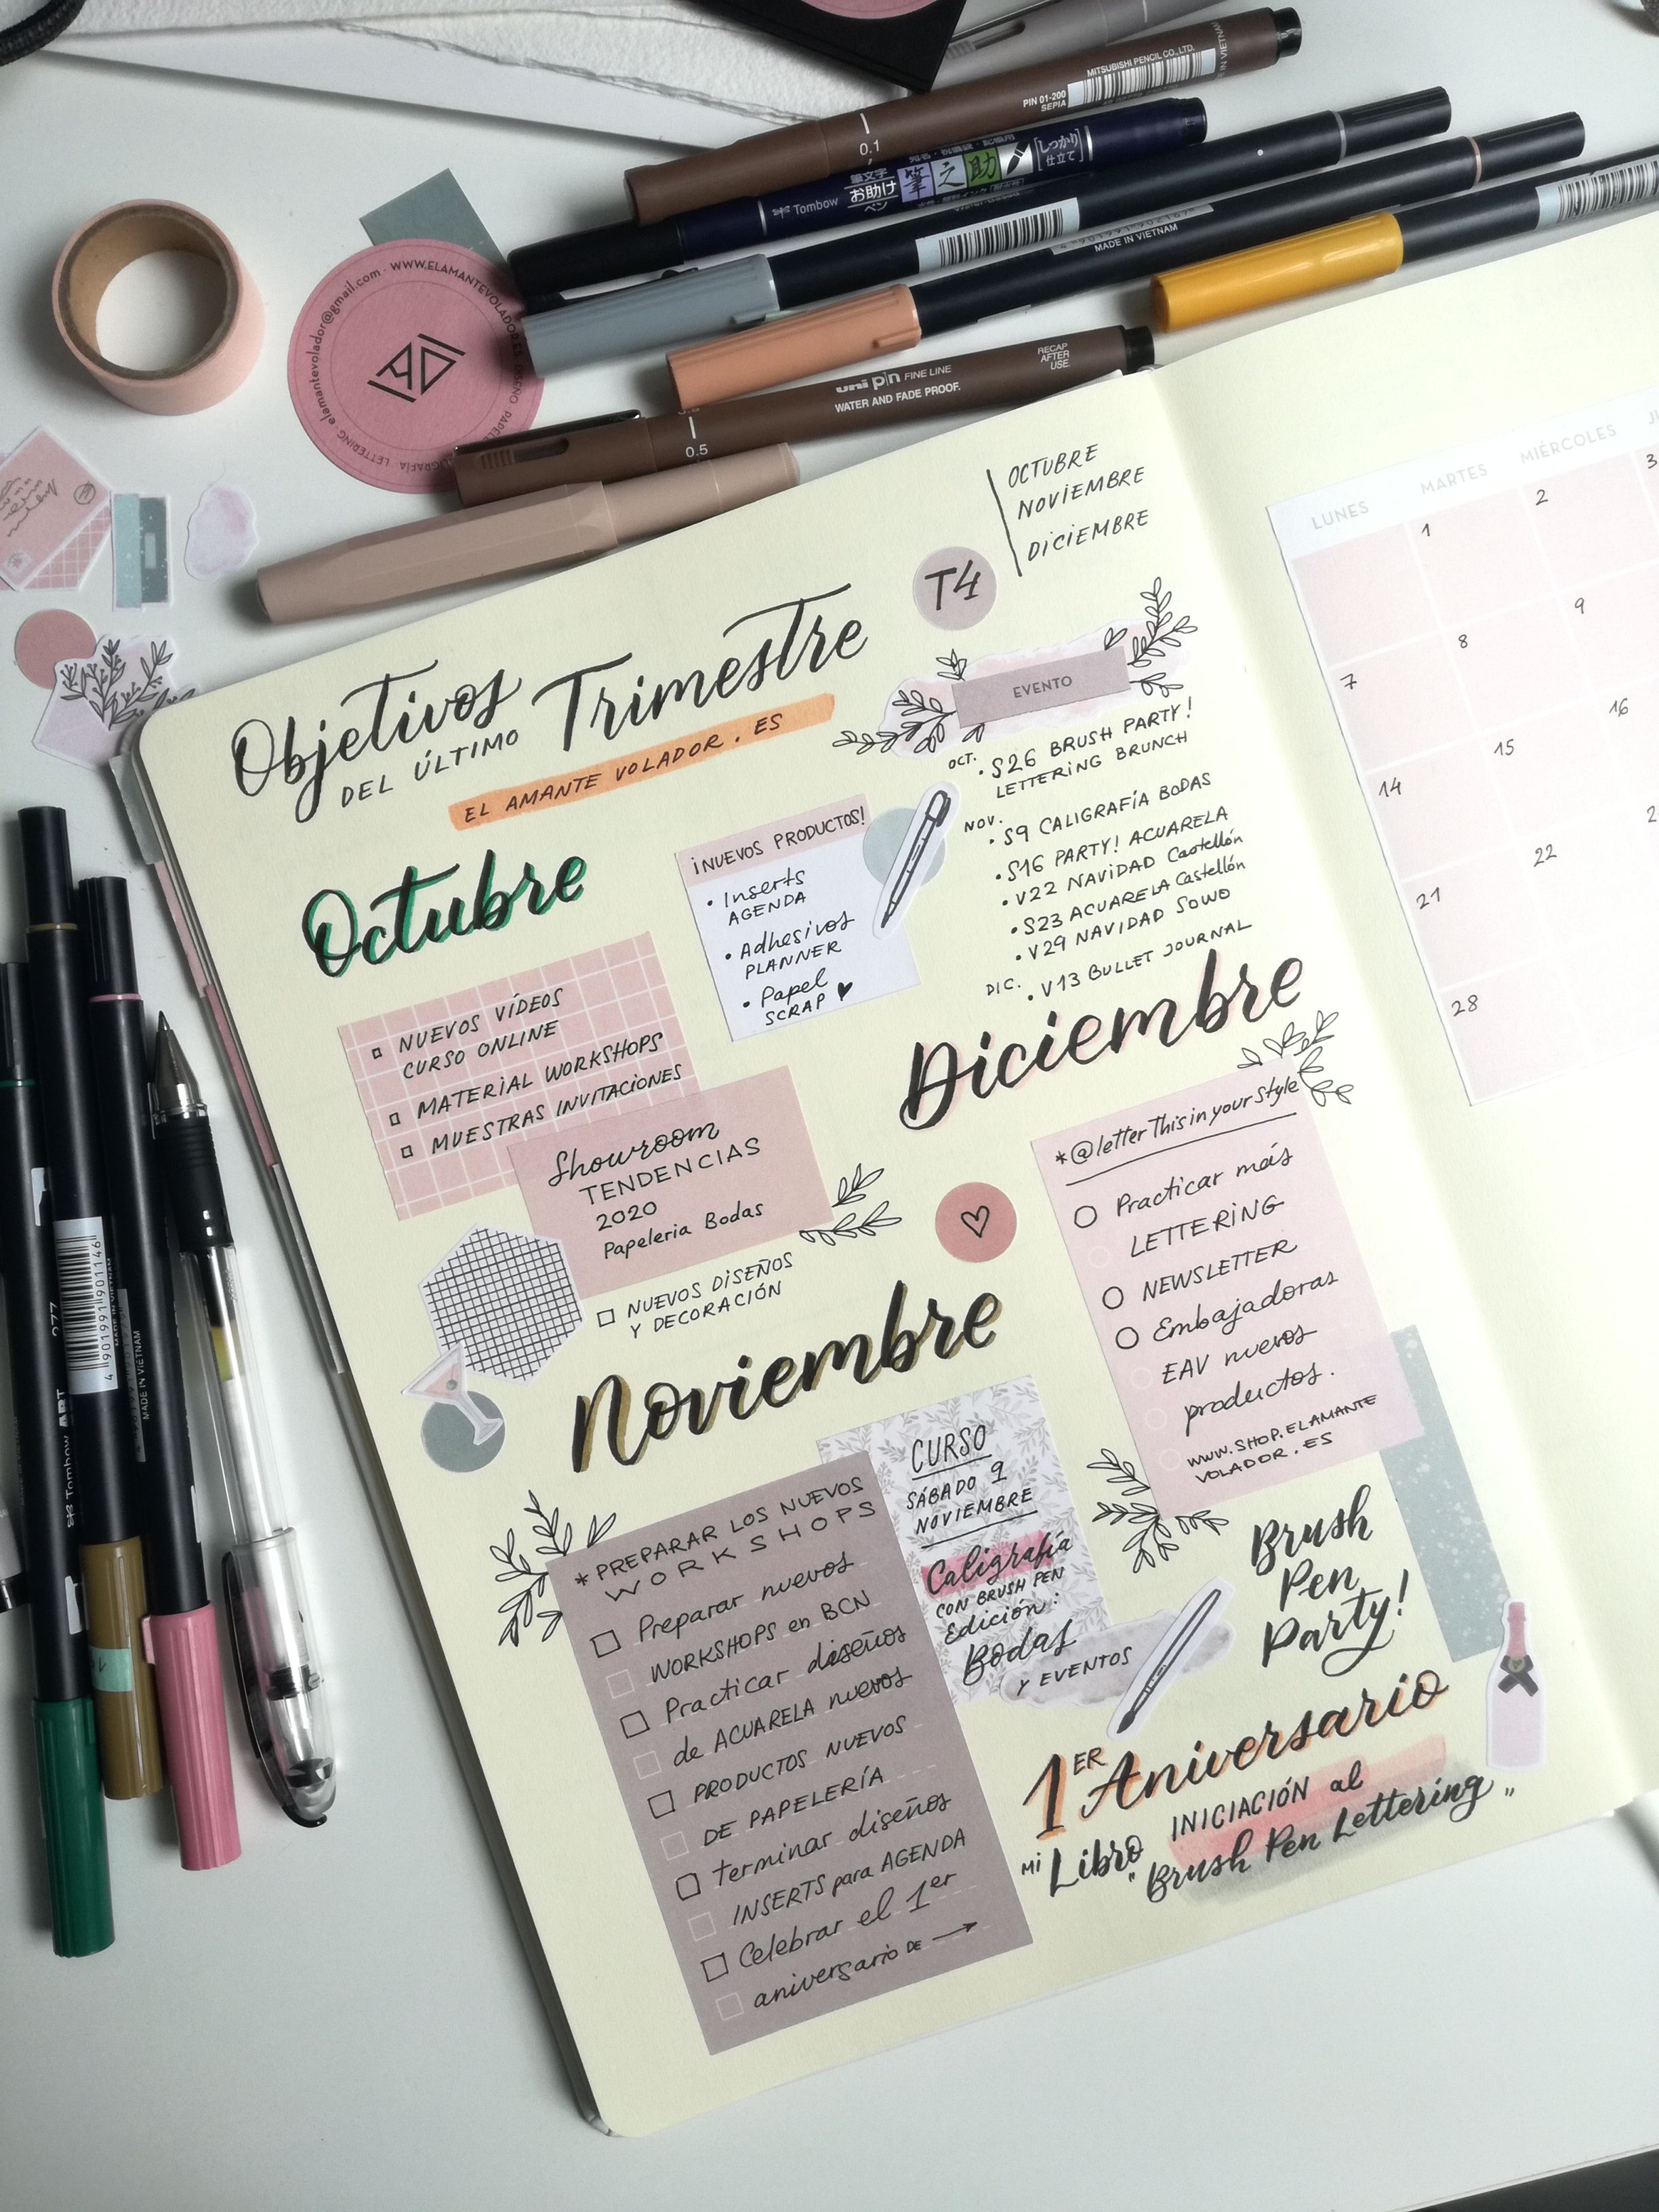 MITSUBISHI PENCIL CO., LTD.
PIN 01-200
SEPIA
0.1
Tombow
筆文字
お助け
ペン
筆之助
しっかり
仕立て
MADE IN VIETNAM
uni pin FINE LINE
WATER AND FADE PROOF.
RECAP
AFTER
USE.
0.5
elamantevolador@gmail.com · WWW.ELAMANTEVOLADOR.ES
LETTERING
OCTUBRE
NOVIEMBRE
DICIEMBRE
T4
Objetivos
DEL ÚLTIMO Trimestre
EL AMANTE VOLADOR . ES
EVENTO
OCT.
• S26 BRUSH PARTY!
LETTERING BRUNCH
NOV.
• S9 CALIGRAFÍA BODAS
• S16 PARTY! ACUARELA
• V22 NAVIDAD Castellón
• S23 ACUARELA Castellón
• V29 NAVIDAD SOWO
DIC.
• V13 BULLET JOURNAL
¡NUEVOS PRODUCTOS!
• Inserts
AGENDA
• Adhesivos
PLANNER
• Papel
SCRAP ♥
Octubre
NUEVOS VÍDEOS
CURSO ONLINE
MATERIAL WORKSHOPS
MUESTRAS INVITACIONES
Showroom
TENDENCIAS
2020
Papeleria Bodas
NUEVOS DISEÑOS
Y DECORACIÓN
Noviembre
*PREPARAR LOS NUEVOS
WORKSHOPS
Preparar nuevos
WORKSHOPS en BCN
Practicar diseños
de ACUARELA nuevos
PRODUCTOS NUEVOS
DE PAPELERÍA
terminar diseños
INSERTS para AGENDA
Celebrar el 1er
aniversario DE →
CURSO
SÁBADO 9
NOVIEMBRE
Caligrafía
CON BRUSH PEN
Edición:
Bodas
Y EVENTOS
Diciembre
*@letterThisinyourstyle
Practicar más
LETTERING
NEWSLETTER
Embajadoras
EAV nuevos
productos.
WWW.SHOP.ELAMANTE
VOLADOR.ES
Brush
Pen
Party!
1ER Aniversario
MI Libro INICIACIÓN al
"Brush Pen Lettering"
LUNES MARTES MIÉRCOLES
1 2 3
7 8 9
14 15 16
21 22
28
277
Tombow ABT
4 901991 901146
MADE IN VIETNAM
MADE IN VIETNAM